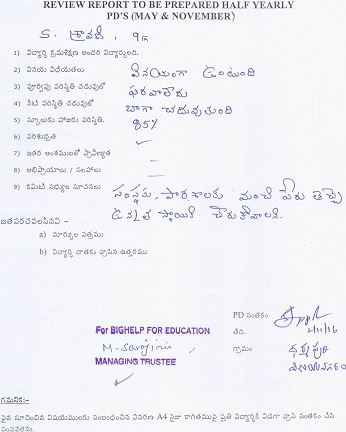 REVIEW REPORT TO BE PREPARED HALF YEARLY
PD'S (MAY & NOVEMBER)
S. శ్రావణి, 9th
1) విద్యార్థి క్రమశిక్షణ అందరి విద్యార్థులది.
2) వినయ విధేయతలు వినయంగా ఉంటుంది
3) పూర్వపు పరిస్థితి చదువులో ఫరవాలేదు
4) నేటి పరిస్థితి చదువులో బాగా చదువుతుంది
5) స్కూలుకు హాజరు పరిస్థితి. 85%
6) పరిశుభ్రత ✓
7) ఇతర అంశములలో ప్రావీణ్యత –
8) అభిప్రాయాలు / సలహాలు –
9) కమిటీ సభ్యుల సూచనలు సంస్థకు, పాఠశాలకు మంచి పేరు తెచ్చి
ఉన్నత స్థాయికి చేరుకోవాలి.
జతపరచవలసినవి –
a) మార్కుల పత్రము
b) విద్యార్థి దాతకు వ్రాసిన ఉత్తరము
PD సంతకం
For BIGHELP FOR EDUCATION
తేది. 2/11/16
M. Sarojini
గ్రామం ధర్మపురి
MANAGING TRUSTEE
విజయనగరం
గమనిక:-
పైన సూచించిన విషయములకు సంబంధించిన వివరణ A4 సైజు కాగితముపై ప్రతి విద్యార్థికి విడిగా వ్రాసి సంతకం చేసి
పంపవలెను.